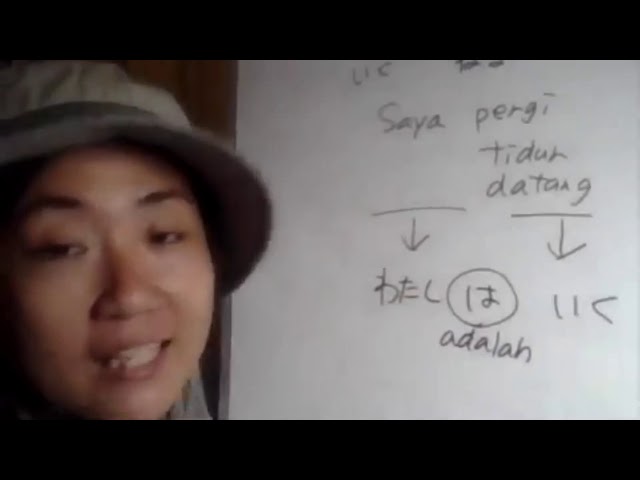 いく
Saya pergi
tidur
datang
わたし は いく
adalah